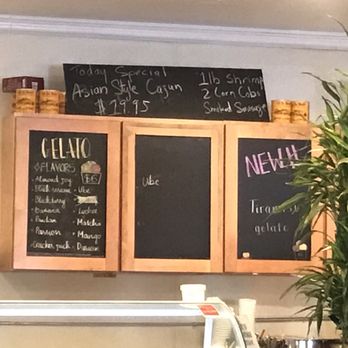 Today Special
Asian Style Cajun
$29.95
1lb Shrimp
2 Corn Cobs
Smoked Sausage
GELATO
FLAVORS
Almond joy
Black sesame
Blackberry
Banana
Pandan
Passion
Cracker jack
Ube
Lychee
Matcha
Mango
Durian
Ube
NEW!!
Tiramisu
gelato